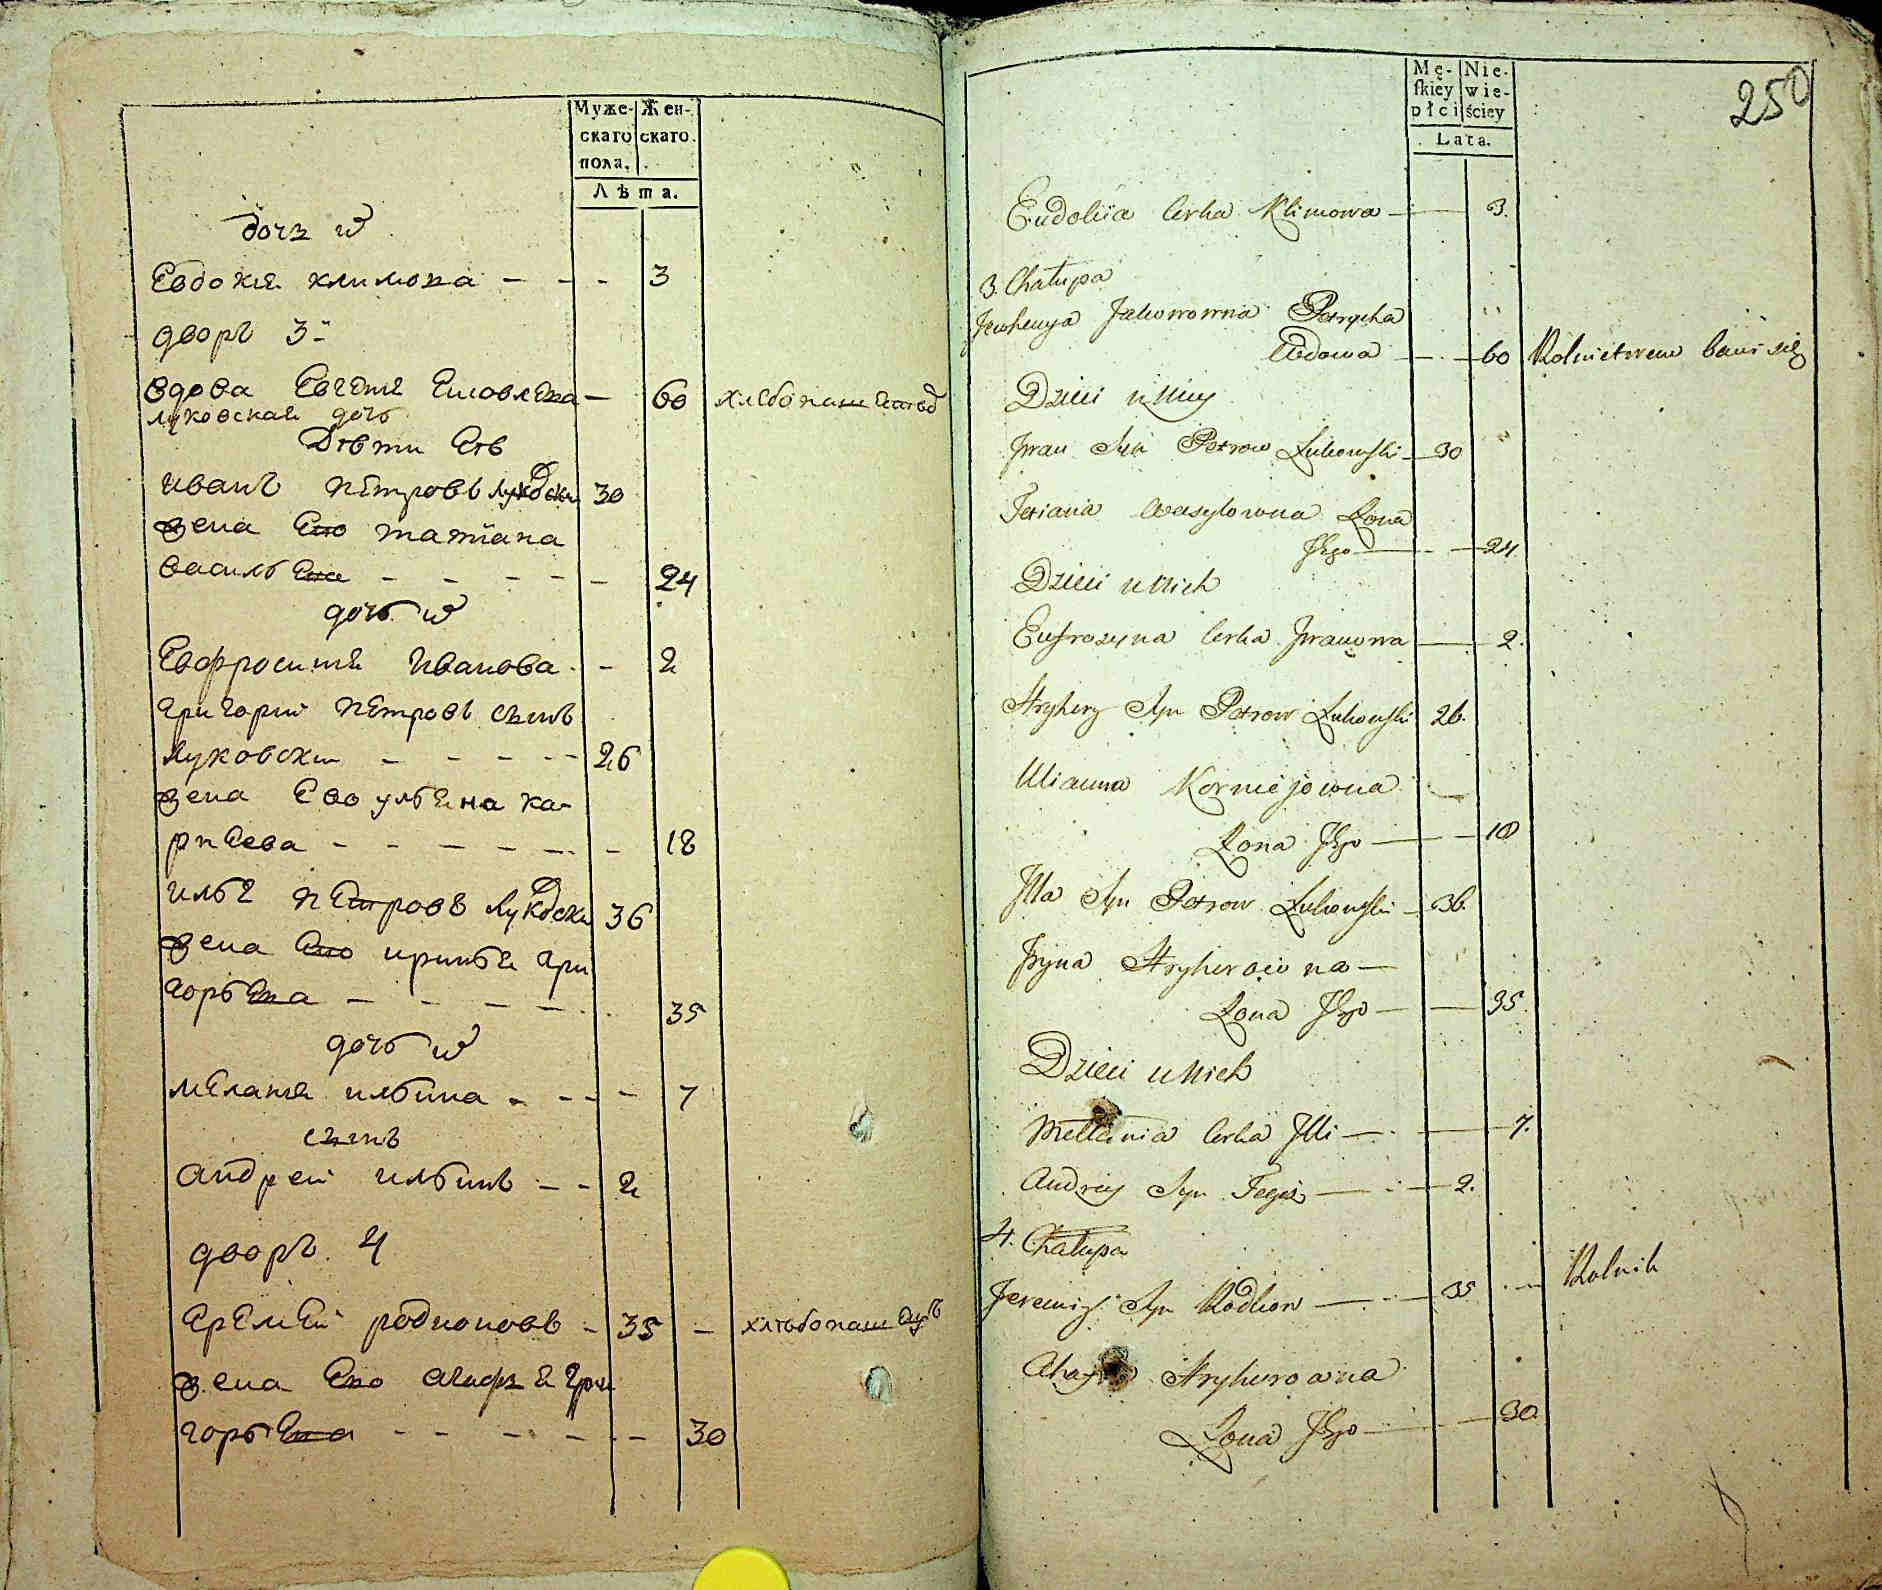 Муже- Жен-
скаго скаго.
пола.
Лѣта.
дочь
Евдокия климова - - - 3
дворъ 3-
вдова Евгения - 60
луковская дочь
Дѣти Еѣ
иванъ петровъ луковски 30
жена Его татиана
василъева - - - - - 24
дочь
Евфросиния иванова - - 2
григорий петровъ сынъ
луковски - - - - - 26
жена Ево улъяна ка-
рнеева - - - - - - - 18
илъя петровъ луковски 36
жена Его иринъя гри
горъева - - - - 35
дочъ
мелания илъина - - - - 7
сынъ
андрей илъинъ - - 2
дворъ 4
еремей родионовъ - 35 - хлѣбопашецъ
жена Его агафья гри
горъева - - - - - - - 30
250
Mę- Nie-
skiey wie-
płci ściey
Lata.
Eudokiia Corka Klimowa — 3.
3. Chałupa
Petrycha
Wdowa — 60 Rolnictwem bawi się
Dzieci u Niey
Jwan Syn Petrow Łukowski — 30
Tatiana Wasylowna Żona
Jego — 24.
Dzieci u Nich
Eufrozyna Corka Jwanowa — 2.
Hryhory Syn Petrow Łukowski 26.
Ulianna Korniejowna
Żona Jego — 18
Jlla Syn Petrow Łukowski — 36.
Jryna Hryhorowna —
Żona Jego — 35.
Dzieci u Nich
Mellania Corka Jlli — 7.
Andrey Syn Tegoż — 2.
4. Chałupa
Jeremiy Syn Rodion — 35 — Rolnik
Hryhorowna
Żona Jego — 30.